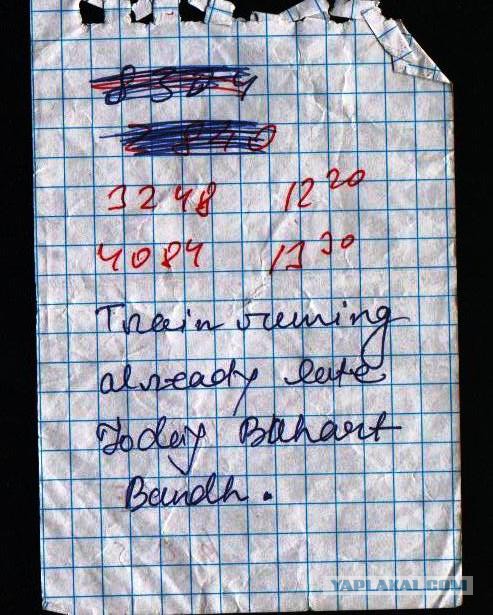 3248 12 20
4084 13 30
Train running
already late
Today Bahart
Bandh.
YAPLAKAL.COM